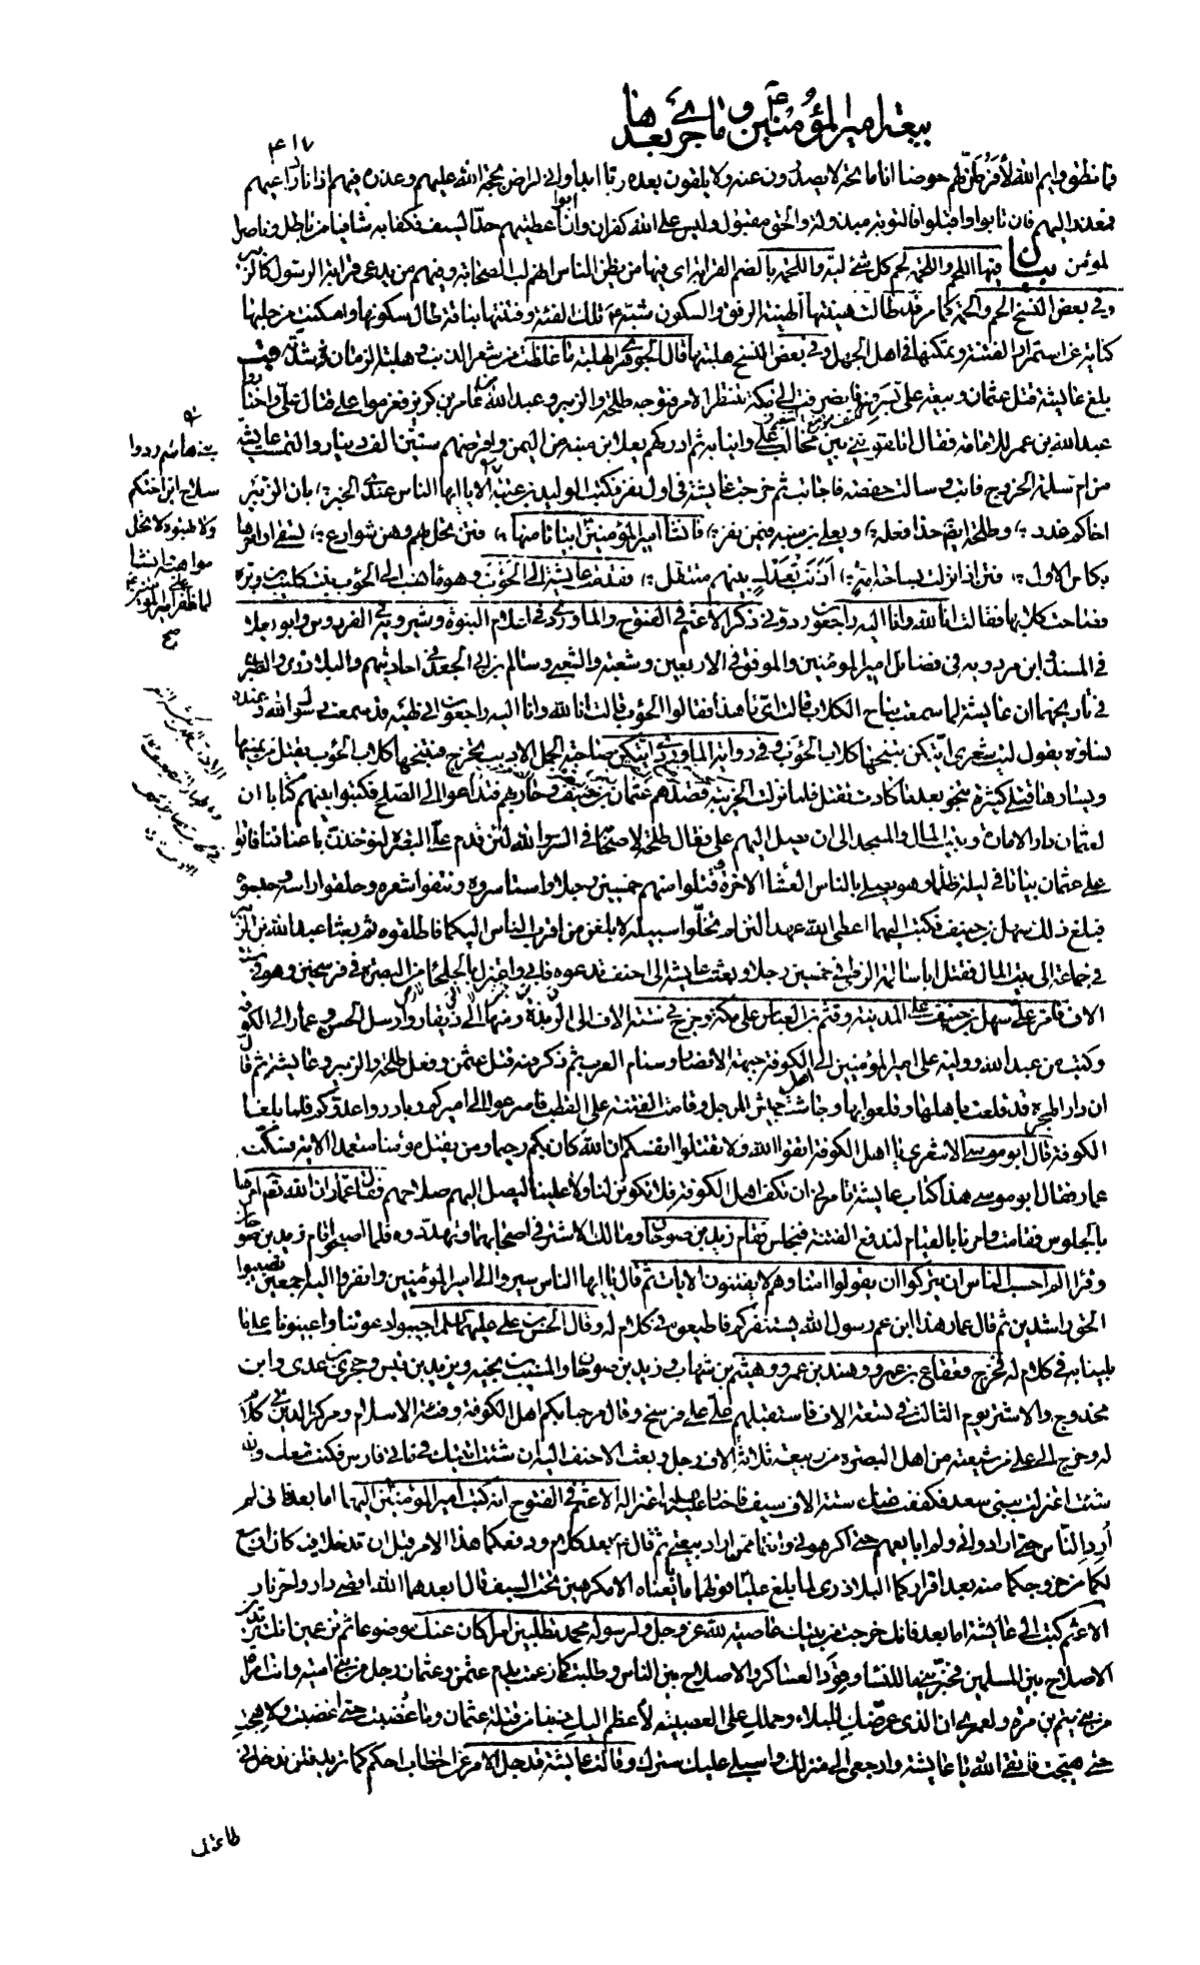 بيعة امير المؤمنين ع و ما جرى بعدها
٤١٧
فما نطق وايم الله لأفرطن لهم حوضا انا ماتحه لا يصدرون عنه ولا يلقون بعده ريا ابدا واني لراض بحجة الله عليهم وعذره فيهم اذ انا داعيهم
فمعذر اليهم فان تابوا واقبلوا فالتوبة مبذولة والحق مقبول وليس على الله كفران وان ابوا اعطيتهم حد السيف فكفى به شافيا من باطل وناصرا
لمؤمن بيان فيها اللحم واللحمة لحم كل شئ لبه واللحمة بالضم القرابة اى فيها من يظن الناس انهم لب الصحابة وفيهم من يدعى قرابة الرسول كالزبير
وفي بعض النسخ الحم والحمة كما مر قد طالت هينتها الهينة الرفق والسكون شبه ع تلك الفئة وفتنتها بناقة طال سكونها وامكنت من حلبها
كناية عن استمرار الفتنة وتمكنها في اهل الجهل وفي بعض النسخ هلبتها قال الجوهري الهلبة ما غلظ من شعر الذنب وهلبة الزمان شدته قب
بلغ عايشة قتل عثمان وبيعة علي بسرف فانصرفت الى مكة تنتظر الامر فتوجه طلحة والزبير وعبد الله بن عامر بن كريز فعزموا على قتال علي واختاروا
عبد الله بن عمر للامامة فقال اتلقونني بين مخالب علي وانيابه ثم ادركهم يعلى بن منبه من اليمن واقرضهم ستين الف دينار والتمست عايشة
من ام سلمة الخروج فابت وسالت حفصة فاجابت ثم خرجت عايشة في اول نفر فكتب الوليد بن عتبة الا يا ايها الناس عندي الخبر بان الزبير
اخاكم غدر وطلحة ايضا حذا فعله ويعلى بن منبه فيمن نفر فانشا امير المؤمنين ابياتا منها فتن تحل بهم وهن شوارع تسقى اواخرها
بكاس الاول فتن اذا نزلت بساحة امة اذنت بعدل بينهم متنفل فقدمت عايشة الى الحوأب وهو ماء نسب الى الحوأب بنت كليب بن وبرة
فصاحت كلابها فقالت انا لله وانا اليه راجعون ردوني ذكر الاعثم في الفتوح والماوردي في اعلام النبوة وشيرويه في الفردوس وابو يعلى
في المسند وابن مردويه في فضائل امير المؤمنين والموفق في الاربعين وشعبة والشعبي وسالم بن ابي الجعد في احاديثهم والبلاذري والطبري
في تاريخهما ان عايشة لما سمعت نباح الكلاب قالت اي ماء هذا فقالوا الحوأب قالت انا لله وانا اليه راجعون اني لهية قد سمعت رسول الله وعنده
نساؤه يقول ليت شعري ايتكن تنبحها كلاب الحوأب وفي رواية الماوردي ايتكن صاحبة الجمل الادبب تخرج فتنبحها كلاب الحوأب يقتل من يمينها
ويسارها قتلى كثيرة تنجو بعد ما كادت تقتل فلما نزلت الخريبة قصدهم عثمان بن حنيف وحاربهم فتداعوا الى الصلح فكتبوا بينهم كتابا ان
لعثمان دار الامارة وبيت المال والمسجد الى ان يصل اليهم علي فقال طلحة لاصحابه في السر والله لئن قدم علي البصرة لنؤخذن باعناقنا فاتوا
على عثمان بياتا في ليلة ظلماء وهو يصلي بالناس العشاء الاخرة وقتلوا منهم خمسين رجلا واستاسروه ونتفوا شعره وحلقوا راسه وحبسوه
فبلغ ذلك سهل بن حنيف فكتب اليهما اعطى الله عهدا لئن لم تخلوا سبيله لابلغن من اقرب الناس اليكما فاطلقوه ثم بعثا عبد الله بن الزبير
في جماعة الى بيت المال فقتل ابا سالمة الزطي في خمسين رجلا وبعثت عايشة الى احنف تدعوه فابى واعتزل بالجلحاء من البصرة في فرسخين وهو في ستة
الاف فامر علي سهل بن حنيف على المدينة وقثم بن العباس على مكة وخرج في ستة الاف الى الربذة ومنها الى ذي قار وارسل الحسن وعمار الى الكوفة
وكتب من عبد الله ووليه علي امير المؤمنين الى اهل الكوفة جبهة الانصار وسنام العرب ثم ذكر فيه قتل عثمن وفعل طلحة والزبير وعايشة ثم قال
ان دار الهجرة قد قلعت باهلها وقلعوا بها وجاشت جيش المرجل وقامت الفتنة على القطب فاسرعوا الى اميركم وبادروا عدوكم فلما بلغا
الكوفة قال ابو موسى الاشعري يا اهل الكوفة اتقوا الله ولا تقتلوا انفسكم ان الله كان بكم رحيما ومن يقتل مؤمنا متعمدا الاية فسكته
عمار فقال ابو موسى هذا كتاب عايشة تامرني ان تكف اهل الكوفة فلا تكونن لنا ولا علينا ليصل اليهم صلاحهم فقال عمار ان الله تعالى امرها
بالجلوس فقامت وامرنا بالقيام لندفع الفتنة فنجلس فقام زيد بن صوحان ومالك الاشتر في اصحابهما وتهددوه فلما اصبحوا قام زيد بن صوحان
وقرا الم احسب الناس ان يتركوا ان يقولوا امنا وهم لا يفتنون الايات ثم قال يا ايها الناس سيروا الى امير المؤمنين وانفروا اليه اجمعين تصيبوا
الحق راشدين ثم قال عمار هذا ابن عم رسول الله يستنفركم فاطيعوه في كلام له وقال الحسن بن علي عليهما السلم اجيبوا دعوتنا واعينونا على ما
بلينا به في كلام له فخرج قعقاع بن عمرو وهند بن عمرو وهيثم بن شهاب وزيد بن صوحان والمسيب بن نجبة ويزيد بن قيس وحجر بن عدى وابن
مخدوج والاشتر يوم الثالث في تسعة الاف فاستقبلهم علي على فرسخ وقال مرحبا بكم اهل الكوفة وفئة الاسلام ومركز الدين في كلام
له وخرج الى علي من شيعته من اهل البصرة من ربيعة ثلاثة الاف رجل وبعث الاحنف اليه ان شئت اتيتك في مائتي فارس فكنت معك وان
شئت اعتزلت ببني سعد فكففت عنك ستة الاف سيف فاختار علي ع اعتزاله الاعثم في الفتوح انه كتب امير المؤمنين اليهما اما بعد فاني لم
أرد الناس حتى ارادوني ولم ابايعهم حتى اكرهوني وانتما ممن اراد بيعتي ثم قال ع بعد كلام ودفعكما هذا الامر قبل ان تدخلا فيه كان اوسع
لكما من خروجكما منه بعد اقراركما البلاذري لما بلغ عليا قولهما ما بايعناه الا مكرهين تحت السيف قال ابعدهما الله اقصى دار واحر نار
الاعثم كتب الى عايشة اما بعد فانك خرجت من بيتك عاصية لله عز وجل ولرسوله محمد تطلبين امرا كان عنك موضوعا ثم تزعمين انك تريدين
الاصلاح بين المسلمين فخبريني ما للنساء وقود العساكر والاصلاح بين الناس وطلبت كما زعمت بدم عثمن وعثمان رجل من بني امية وانت امراة
من بني تيم بن مرة ولعمري ان الذي عرضك للبلاء وحملك على العصبية لأعظم اليك ذنبا من قتلة عثمان وما غضبت حتى اغضبت ولا هجت
حتى هيجت فاتقي الله يا عايشة وارجعي الى منزلك واسبلي عليك سترك وقالت عايشة قد جل الامر عن الخطاب احكم كما تريد فلن ندخل في
طاعتك
بنى هاشم ردوا
سلاح ابن اختكم
ولا تنهبوه لا تحل
مواهبه